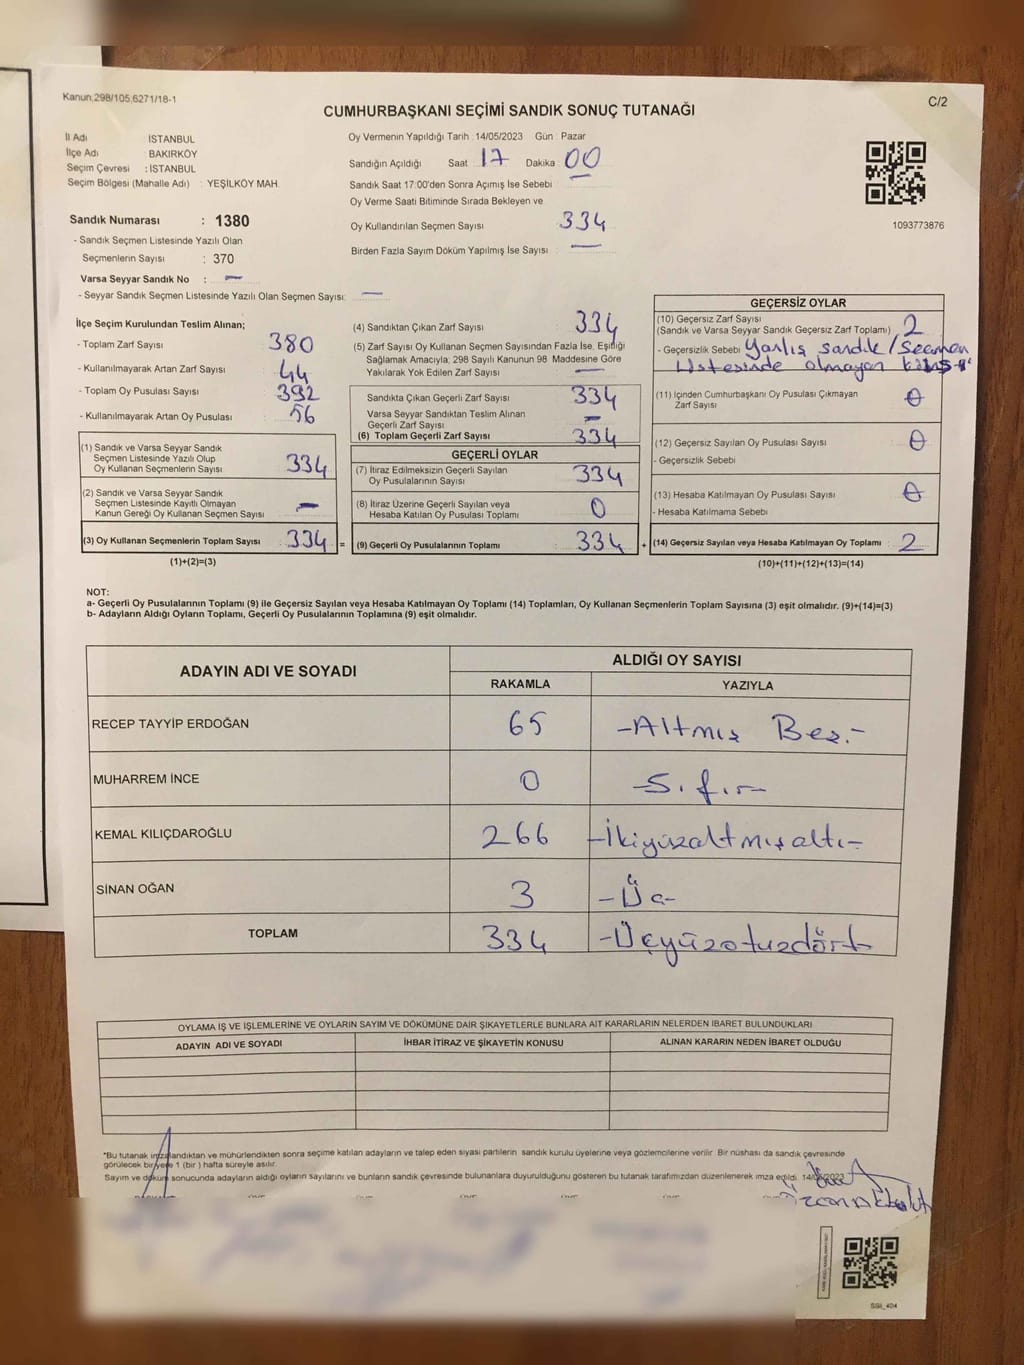 Kanun 298/105,6271/18-1
C/2
CUMHURBAŞKANI SEÇİMİ SANDIK SONUÇ TUTANAĞI
İl Adı İSTANBUL
İlçe Adı BAKIRKÖY
Seçim Çevresi : İSTANBUL
Seçim Bölgesi (Mahalle Adı) : YEŞİLKÖY MAH.
Sandık Numarası : 1380
- Sandık Seçmen Listesinde Yazılı Olan
Seçmenlerin Sayısı : 370
Varsa Seyyar Sandık No : —
- Seyyar Sandık Seçmen Listesinde Yazılı Olan Seçmen Sayısı: —
Oy Vermenin Yapıldığı Tarih : 14/05/2023 Gün : Pazar
Sandığın Açıldığı Saat 17 Dakika 00
Sandık Saat 17:00'den Sonra Açımış İse Sebebi : —
Oy Verme Saati Bitiminde Sırada Bekleyen ve
Oy Kullandırılan Seçmen Sayısı : 334
Birden Fazla Sayım Döküm Yapılmış İse Sayısı : —
1093773876
İlçe Seçim Kurulundan Teslim Alınan;
- Toplam Zarf Sayısı : 380
- Kullanılmayarak Artan Zarf Sayısı : 44
- Toplam Oy Pusulası Sayısı : 392
- Kullanılmayarak Artan Oy Pusulası : 56
(1) Sandık ve Varsa Seyyar Sandık
Seçmen Listesinde Yazılı Olup
Oy Kullanan Seçmenlerin Sayısı : 334
(2) Sandık ve Varsa Seyyar Sandık
Seçmen Listesinde Kayıtlı Olmayan
Kanun Gereği Oy Kullanan Seçmen Sayısı : —
(3) Oy Kullanan Seçmenlerin Toplam Sayısı : 334 =
(1)+(2)=(3)
(4) Sandıktan Çıkan Zarf Sayısı : 334
(5) Zarf Sayısı Oy Kullanan Seçmen Sayısından Fazla İse, Eşitliği
Sağlamak Amacıyla; 298 Sayılı Kanunun 98. Maddesine Göre
Yakılarak Yok Edilen Zarf Sayısı : —
Sandıkta Çıkan Geçerli Zarf Sayısı : 334
Varsa Seyyar Sandıktan Teslim Alınan
Geçerli Zarf Sayısı : —
(6) Toplam Geçerli Zarf Sayısı : 334
GEÇERLİ OYLAR
(7) İtiraz Edilmeksizin Geçerli Sayılan
Oy Pusulalarının Sayısı : 334
(8) İtiraz Üzerine Geçerli Sayılan veya
Hesaba Katılan Oy Pusulası Toplamı : 0
(9) Geçerli Oy Pusulalarının Toplamı : 334 +
GEÇERSİZ OYLAR
(10) Geçersiz Zarf Sayısı
(Sandık ve Varsa Seyyar Sandık Geçersiz Zarf Toplamı) : 2
- Geçersizlik Sebebi : Yanlış sandık/Seçmen
listesinde olmayan
(11) İçinden Cumhurbaşkanı Oy Pusulası Çıkmayan
Zarf Sayısı : 0
(12) Geçersiz Sayılan Oy Pusulası Sayısı : 0
- Geçersizlik Sebebi
(13) Hesaba Katılmayan Oy Pusulası Sayısı : 0
- Hesaba Katılmama Sebebi
(14) Geçersiz Sayılan veya Hesaba Katılmayan Oy Toplamı : 2
(10)+(11)+(12)+(13)=(14)
NOT:
a- Geçerli Oy Pusulalarının Toplamı (9) ile Geçersiz Sayılan veya Hesaba Katılmayan Oy Toplamı (14) Toplamları, Oy Kullanan Seçmenlerin Toplam Sayısına (3) eşit olmalıdır. (9)+(14)=(3)
b- Adayların Aldığı Oyların Toplamı, Geçerli Oy Pusulalarının Toplamına (9) eşit olmalıdır.
ADAYIN ADI VE SOYADI ALDIĞI OY SAYISI
RAKAMLA YAZIYLA
RECEP TAYYİP ERDOĞAN 65 -Altmış Beş.-
MUHARREM İNCE 0 -Sıfır-
KEMAL KILIÇDAROĞLU 266 -İkiyüzaltmışaltı-
SİNAN OĞAN 3 -Üç-
TOPLAM 334 -Üçyüzotuzdört-
OYLAMA İŞ VE İŞLEMLERİNE VE OYLARIN SAYIM VE DÖKÜMÜNE DAİR ŞİKAYETLERLE BUNLARA AİT KARARLARIN NELERDEN İBARET BULUNDUKLARI
ADAYIN ADI VE SOYADI İHBAR İTİRAZ VE ŞİKAYETİN KONUSU ALINAN KARARIN NEDEN İBARET OLDUĞU
*Bu tutanak imzalandıktan ve mühürlendikten sonra seçime katılan adayların ve talep eden siyasi partilerin sandık kurulu üyelerine veya gözlemcilerine verilir. Bir nüshası da sandık çevresinde
görülecek bir yere 1 (bir ) hafta süreyle asılır.
Sayım ve döküm sonucunda adayların aldığı oyların sayılarını ve bunların sandık çevresinde bulunanlara duyurulduğunu gösteren bu tutanak tarafımızdan düzenlenerek imza edildi. 14/05/2023
SSI_404